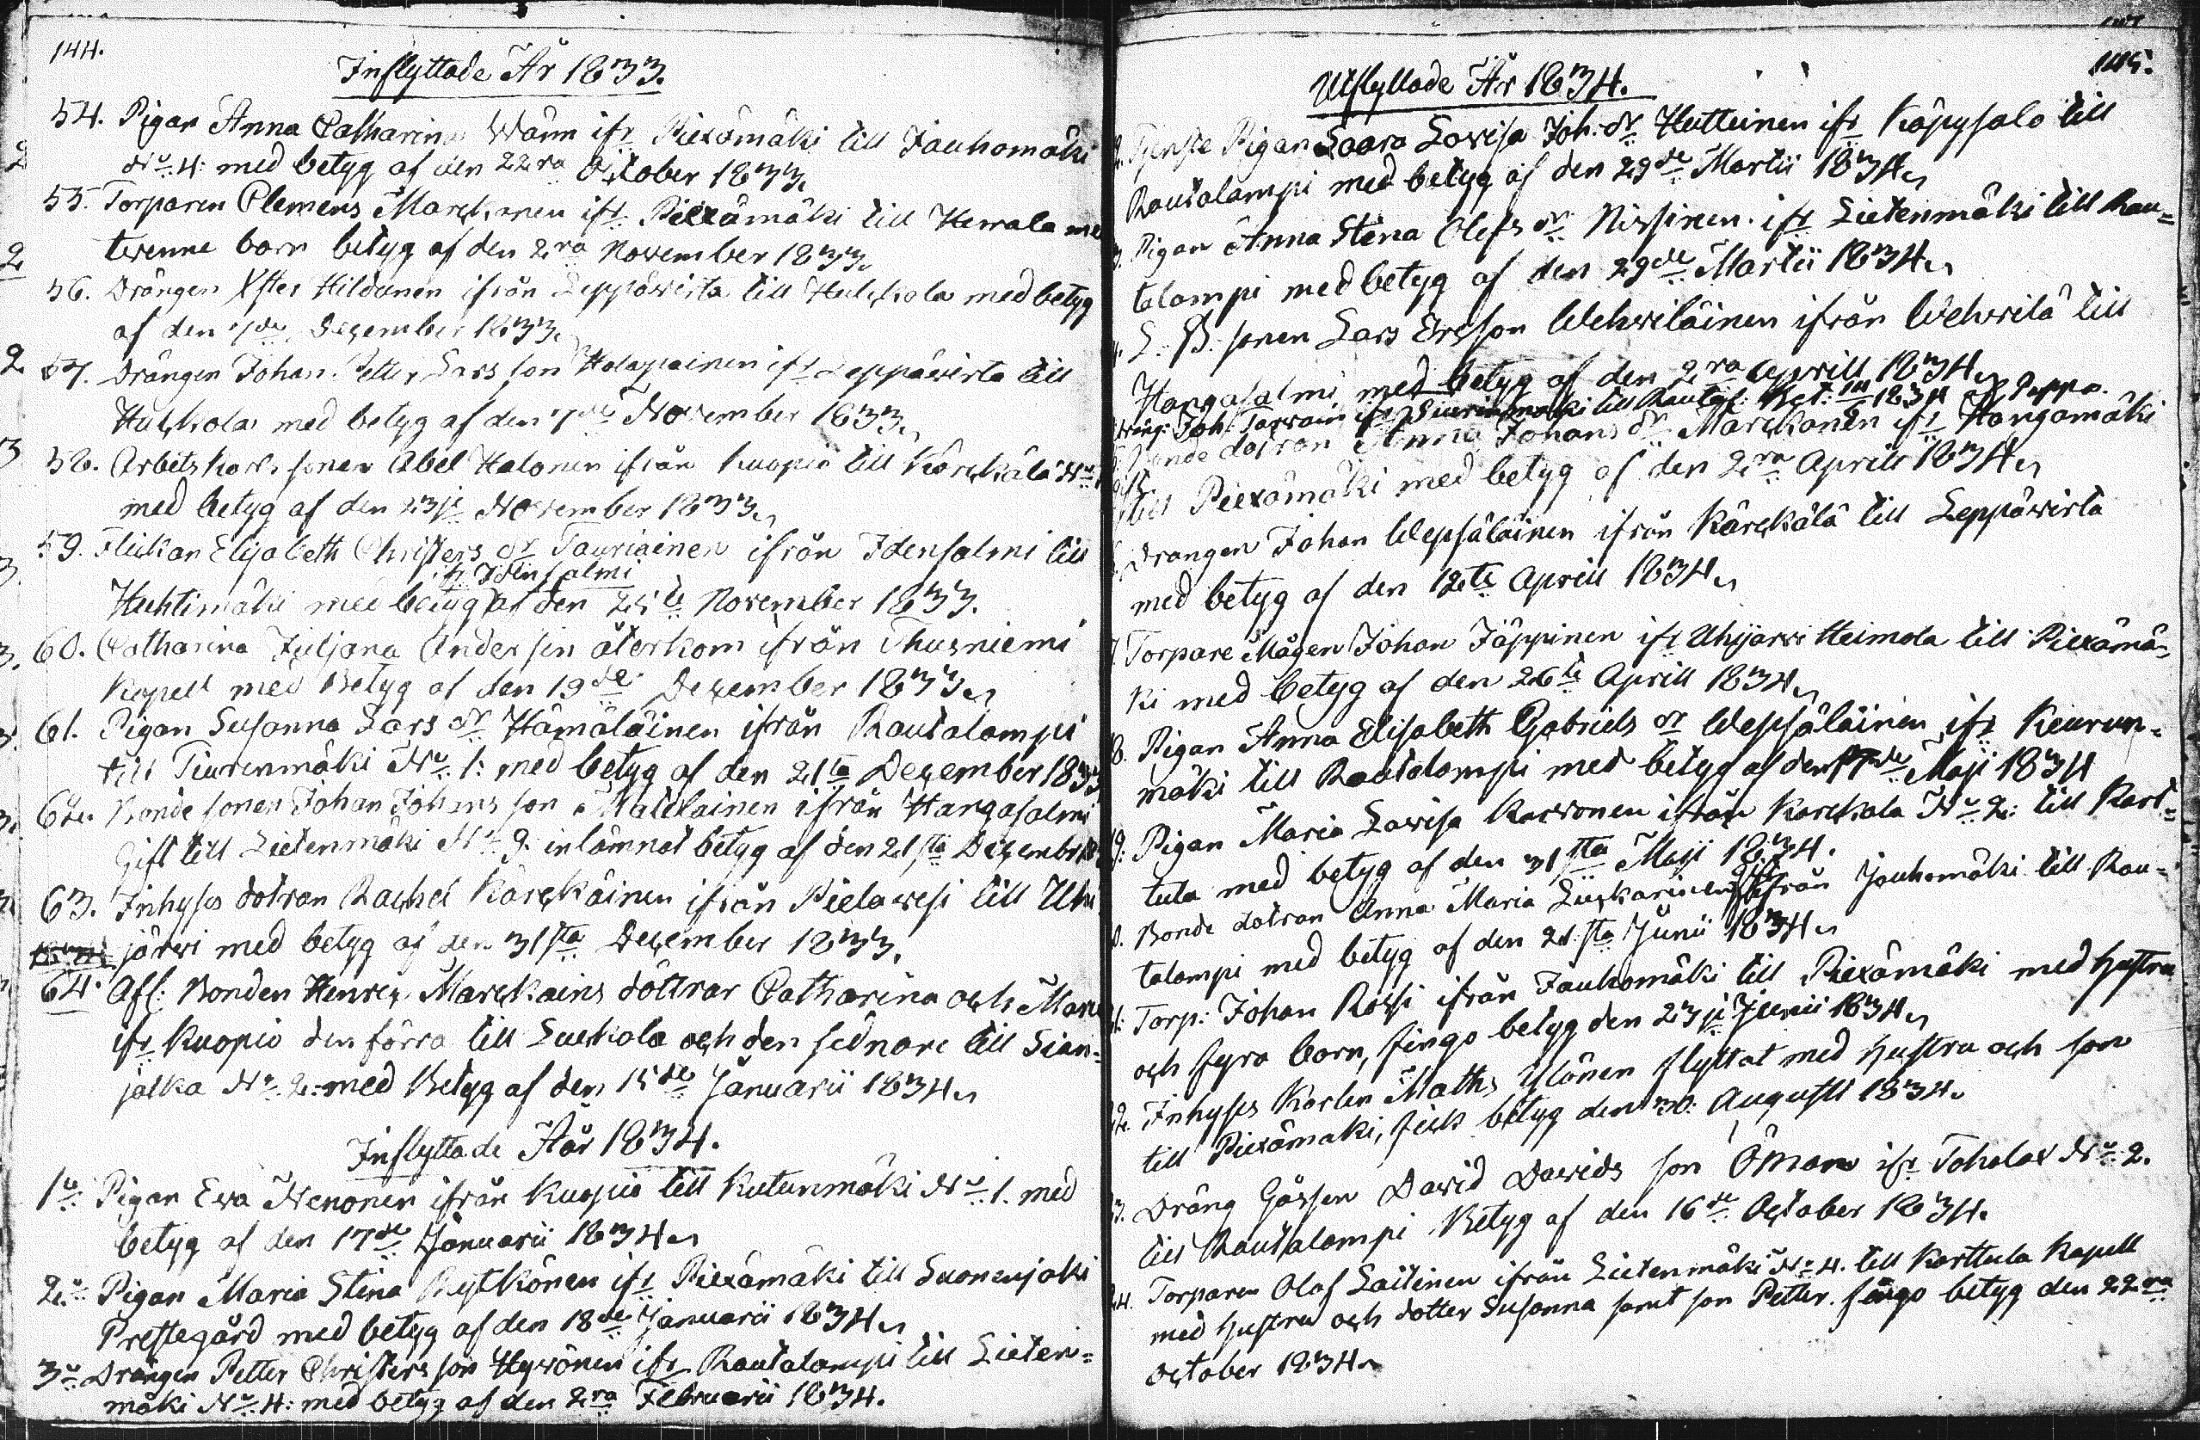 144.
Inflyttade År 1833.
54. Pigan Anna Catharina Wänn ifr Piexämäki till Jauhomäki
No 4: med betyg af den 22ra October 1833.
55. Torparen Clemens Marckanen ifr Piexämäki till Herrala me
trenne barn betyg af den 2ra November 1833.
56. Drängen Xster Hildunen ifrån Leppäwirta till Hulckola med betyg
af den 7de Dezember 1833.
57. Drängen Johan Petter Lars son Holapainen ifr Leppäwirta till
Hulckola med betyg af den 7de November 1833.
58. Arbets Karls sonen Abel Halonen ifrån Kuopio till Kärckälä No
med betyg af den 23je November 1833.
59. Flickan Elisabeth Christers dr Tauriainen ifrån Idensalmi till
ifr Idensalmi
Huhtimäki med betyg af den 25te November 1833.
60. Catharina Juljana Andersin återkom ifrån Thusniemi
Kapell med Betyg af den 19de Dezember 1833.
61. Pigan Susanna Lars dr Hämäläinen ifrån Rautalampi
till Tiurenmäki No 1: med betyg af den 21sta Dezember 1833
62. Bonde sonen Johan Johans son Matilainen ifrån Hangasalmi
Gift till Lietenmäki No 9. inlämnat betyg af den 21sta Dezembr
63. Inhyses dotran Rachel Kärckäinen ifrån Pielawesi till Uhi
järwi med betyg af den 31sta Dezember 1833.
64. Afl: Bonden Henric Marckains döttrar Catharina och Maria
ifr Kuopio den förra till Luckola och den sednare till Sian=
jalka No 2: med Betyg af den 15de Januarii 1834.
Inflyttade År 1834.
1o Pigan Ewa Nenonen ifrån Kuopio till Kutunmäki No 1. med
betyg af den 17de Januarii 1834.
2o Pigan Maria Stina Rytkönen ifr Piexämäki till Suonenjoki
Prestegård med betyg af den 18de Januarii 1834.
3o Drängen Petter Christers son Hywönen ifr Rautalampi till Lieten=
mäki No 4: med betyg af den 2ra Februarii 1834.
145.
Utflyttade År 1834.
Tjenste Pigan Saara Lowisa Joh: dr Hutteinen ifr Käpysalo till
Rautalampi med betyg af den 29de Martii 1834.
Pigan Anna Stina Olofs dr Nissinen ifr Lietenmäki till Rau=
talampi med betyg af den 29de Martii 1834.
L. B. sonen Lars Ersson Wehwiläinen ifrån Wehwilä till
Hangasalmi med betyg af den 2ra Aprill 1834.
Bonde dotran Anna Johans dr Marckanen ifr Hangamäki
till Piexämäki med betyg af den 2ra Aprill 1834.
Drängen Johan Wepsäläinen ifrån Kärckälä till Leppäwirta
med betyg af den 12te Aprill 1834.
Torpare Mågen Johan Jäppinen ifr Uhijarwi Heimola till Piexämä=
ki med betyg af den 26te Aprill 1834.
8. Pigan Anna Elisabeth Gabriels dr Wepsäläinen ifr Keurun=
mäki till Rautalampi med betyg af den 17de Maji 1834
9. Pigan Maria Lowisa Karvonen ifrån Kärckälä No 2: till Kart=
tula med betyg af den 31sta Maji 1834.
Bonde dotran Anna Maria Liuskarinen gift ifrån Jouhomäki till Rau=
talampi med betyg af den 21sta Junii 1834.
Torp: Johan Rossi ifrån Jauhomäki till Piexämäki med hustru
och fyra barn, fingo betyg den 23je Junii 1834.
Inhyses Karlen Maths Ylönen flyttat med hustru och son
till Piexämäki, fick betyg den 30. Augusti 1834.
Dräng Gåssen David Davids son Öman ifr Toholax No 2.
till Rautalampi Betyg af den 16de October 1834.
Torparen Olof Laitinen ifrån Lietenmäki No 4. till Karttula Kapell
med hustru och dotter Susanna samt son Petter. fingo betyg den 22ra
october 1834.